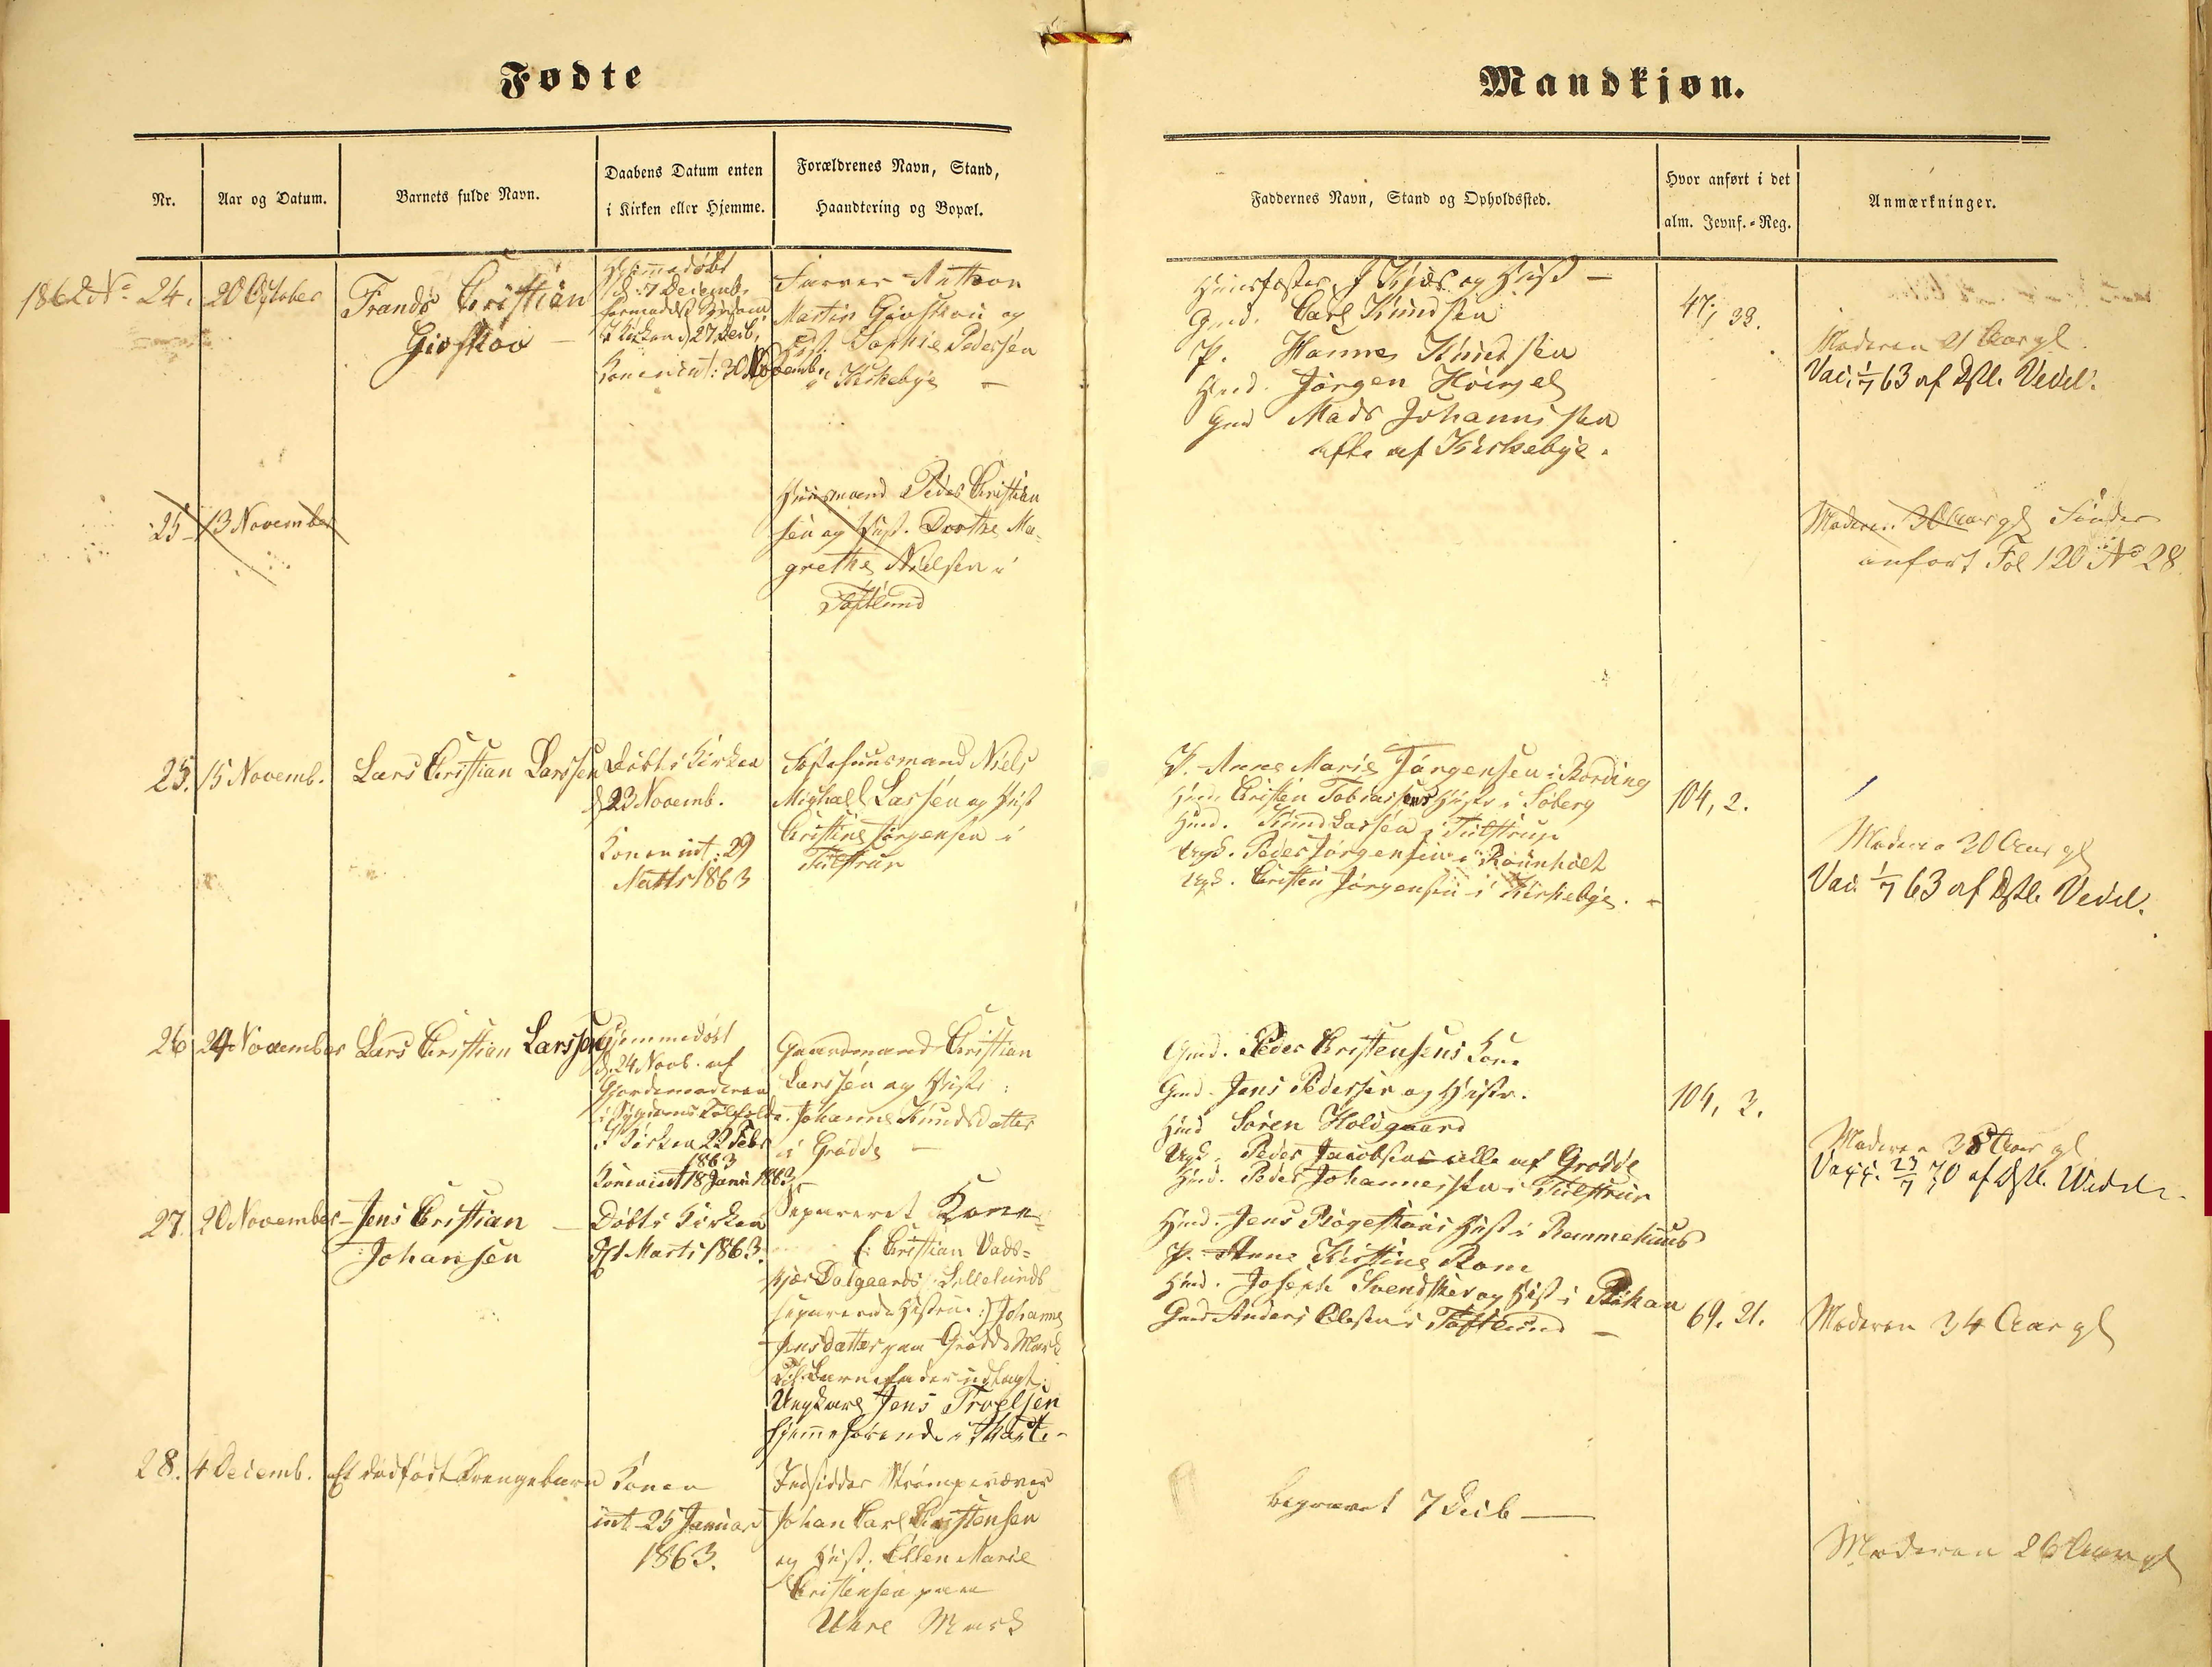 Fødte
Mandkjøn.
Nr.
Aar og Datum.
Barnets fulde Navn.
Daabens Datum enten
i Kirken eller Hjemme.
Forældrenes Navn, Stand,
Haandtering og Bopæl.
Faddernes Navn, Stand og Opholdssted.
Hvor anført i det
alm. Jevnf.-Reg.
Anmærkninger.
1862 No 24.
20 October
Frands Christian
Giøskov
Hjemmedøbt
d: 7 Decemb.
i Kirken d 27 Decb.
Konen int: 30 Novembr.
Farver Anthon
Martin Giøskov og
Hust. Sophie Pedersen
i Kirkebye
Kjær og Hust
Gmd. Carl Knudsen
P. Hanne Knudsen
Hmd. Jørgen
Gmd Mads Johannessen
alle af Kirkebye.
47, 33.
Moderen 21 Aar gl.
Vac. 1/7 63 af Dstl. Vedel.
25
13 November
Huusmand Peder Christian
sen og Hust. Dorthe Ma-
grethe Nielsen i
Toftlund
Moderen 30 Aar gl findes
anført Fol 120 No 28
25.
15 Novemb.
Lars Christian Larssen
Døbt i Kirken
d 23 Novemb.
Konen int: 29
Marts 1863
Niels
Michael Larsen og Hust
Christine Jørgensen i
Tulstrup
P. Anne Marie Jørgensen i Vording
Hmd. Christen Tobiassens Hustr i Søberg
Hmd. Knud Larsen i Tulstrup
Ungk. Peder Jørgensen i Rønholt
Ungk. Christen Jørgensen i Kirkebye.
104, 2.
Moderen 30 Aar gl
Vac. 1/7 63 af Dstl. Vedel.
26
24 November
Lars Christian Larssen
Hjemmedøbt
d. 24 Novb. af
Gjordemoderen
I Kirken 22 Febr
1863
Konen int 18 Janr 1863
Gaardmand Christian
Larssen og Hustr:
Johanne Knudsdatter
i Grødde
Gmd. Peder Christensens Kone
Gmd. Jens Pedersen og Hustr.
Hmd Søren Holdgaard
Ungk. Peder Jacobsen alle af Grødde
Hmd. Peder Johannessen i Tulstrup
104, 3.
Moderen 38 Aar gl
Vacc. 23/7 70 af Dstl. Wedel.
27.
20 November
Jens Christian
Johansen
Døbt i Kirken
d 1 Marts 1863.
Separeret Kone
(: Christian Vads-
kjær Dalgaards Lillelunds
separerede Hustru :) Johanne
Jensdatter paa Grødde Mark
Til Barnefader udlagt:
Ungkarl Jens Troelsen
hjemmehørende i Harte
Hmd. Jens Hust i Remmehuus
P. Anne Kirstine Rom
Hmd. Joseph Svendsker og Hust i
Gmd Anders Olesen i Toftlund
69. 21.
Moderen 34 Aar gl
28.
4 Decemb.
Et dødfødt Drengebarn
Konen
int 25 Januar
1863.
Indsidder Strømpevæver
Johan Carl Christensen
og Hust. Ellen Marie
Christensen paa
Uhre Mark
begravet 7 Decb
Moderen 26 Aar gl